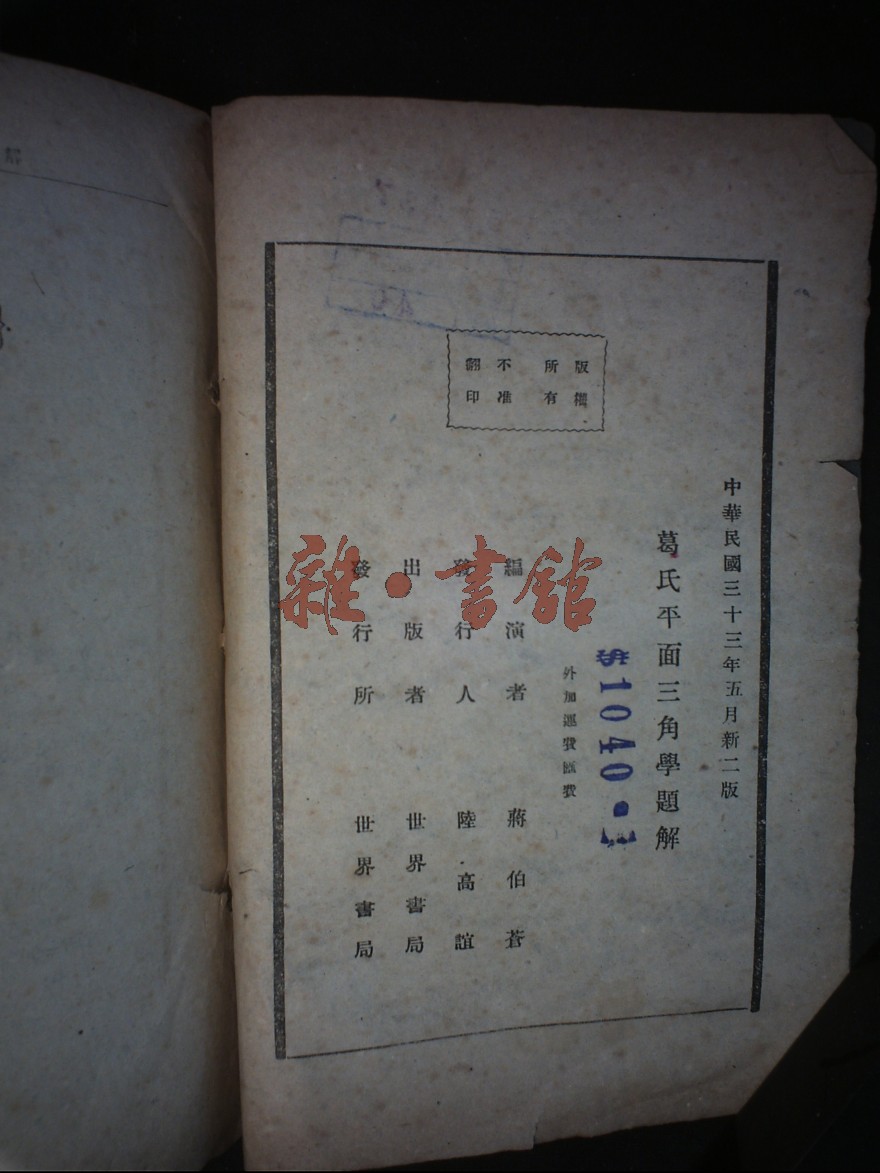 中華民國三十三年五月新二版
葛氏平面三角學題解
$1040.
外加運費匯費
編演者 蔣伯蒼
發行人 陸高誼
出版者 世界書局
發行所 世界書局
版權所有
不准翻印
雜·書館
解